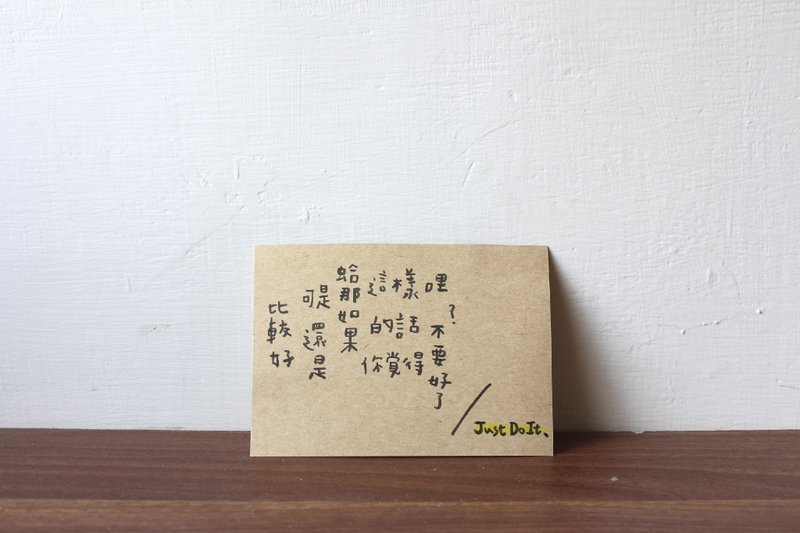 比較好
可是還是
蛤那如果
這樣
的話
你覺得
哩？不要好了
／Just Do It、